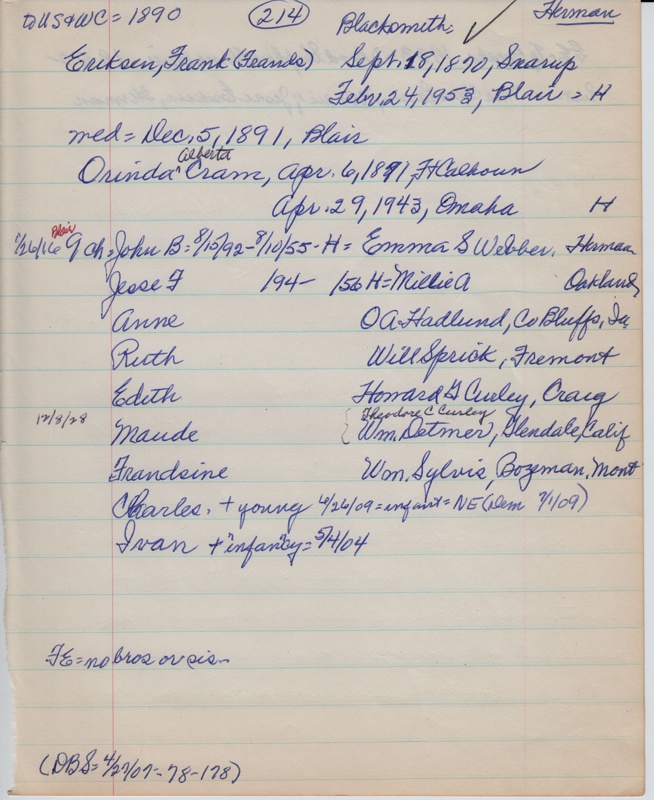 to US & WC = 1890 (214) Blacksmith= ✓ Herman
Eriksen, Frank (Frands) Sept. 18, 1870, Snarup
Febr. 24, 1953, Blair = H
med = Dec. 5, 1891, Blair
Alberta
Orinda ^ Cram, Apr. 6, 1871, Ft Calhoun
Apr. 29, 1943, Omaha H
Blair
1/26/16 9 ch = John B = 8/15/92 - 8/10/55 - H = Emma S Webber, Herman
Jesse F 194- 156 H = Millie A Oakland,
Anne O A Hadlund, Co Bluffs, Ia
Ruth Will Sprick, Fremont
Edith Howard G Curley, Craig
12/8/28 Theodore C Curley
Maude Wm. Detmer, Glendale, Calif
Frandsine Wm. Sylvis, Bozeman, Mont
Charles. + young 4/26/09 = infant = NE (Dem 7/1/09)
Ivan + "infancy = 5/4/04
FE = no bros or sis-
(DBS = 4/27/07 - 78 - 178)